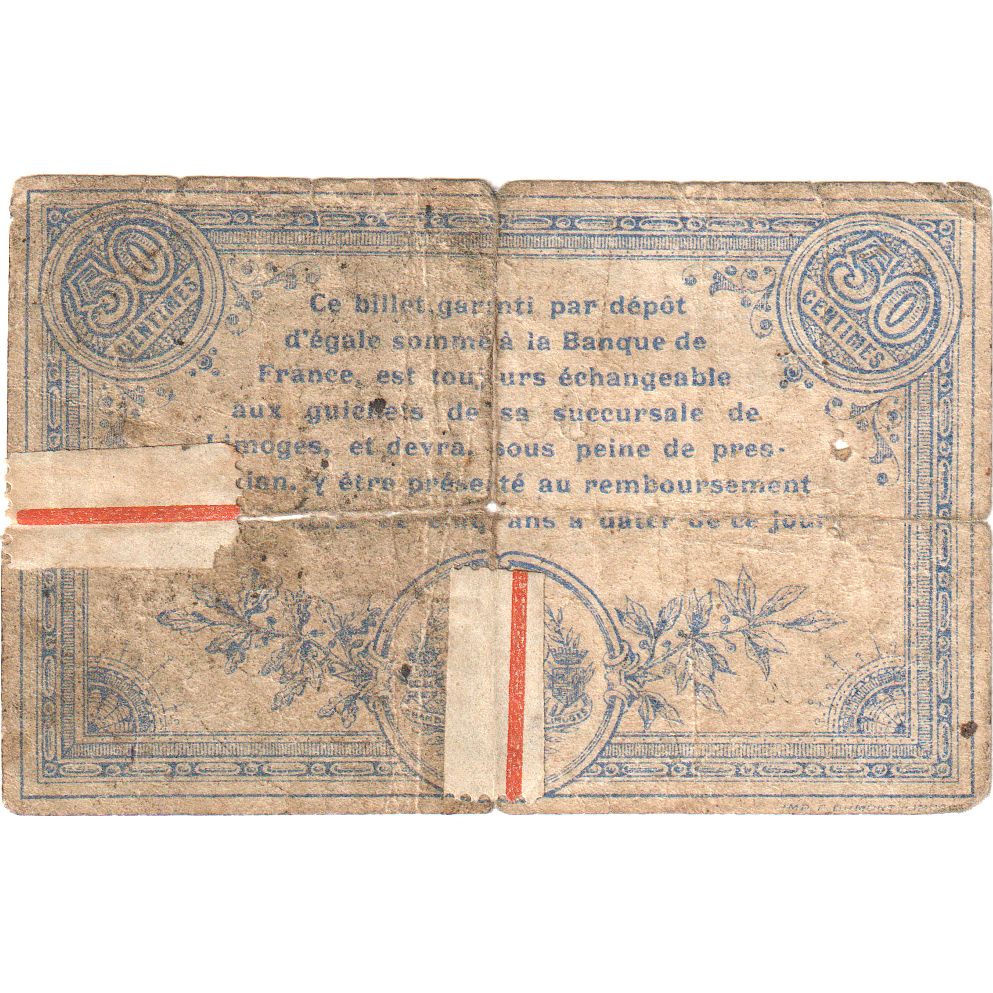 50 CENTIMES
50 CENTIMES
Ce billet, garanti par dépôt
d'égale somme à la Banque de
France, est toujours échangeable
aux guichets de sa succursale de
Limoges, et devra, sous peine de pres-
y être présenté au remboursement
cinq ans à dater de ce jour
LIMOGES
IMP. F. DUMONT LIMOGES